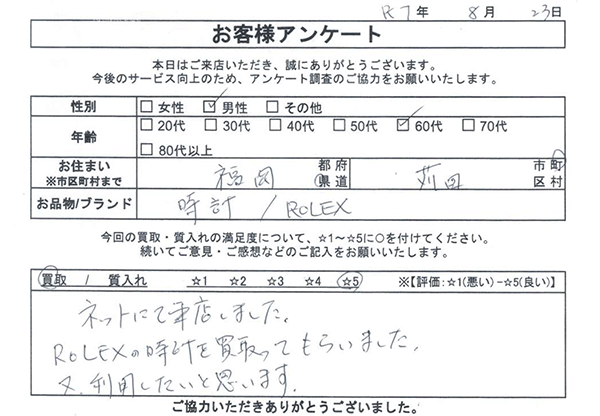 R7年 8月 23日
お客様アンケート
本日はご来店いただき、誠にありがとうございます。
今後のサービス向上のため、アンケート調査のご協力をお願いいたします。
性別 □ 女性 ☑ 男性 □ その他
年齢 □ 20代 □ 30代 □ 40代 □ 50代 ☑ 60代 □ 70代
□ 80代以上
お住まい ※市区町村まで 福岡 都府県道 苅田 市町区村
お品物/ブランド 時計 / ROLEX
今回の買取・質入れの満足度について、☆1~☆5に○を付けてください。
続いてご意見・ご感想などのご記入をお願いいたします。
買取 / 質入れ ☆1 ☆2 ☆3 ☆4 ☆5 ※【評価:☆1(悪い)-☆5(良い)】
ネットにて来店しました。
ROLEXの時計を買取ってもらいました。
又、利用したいと思います。
ご協力いただきありがとうございました。